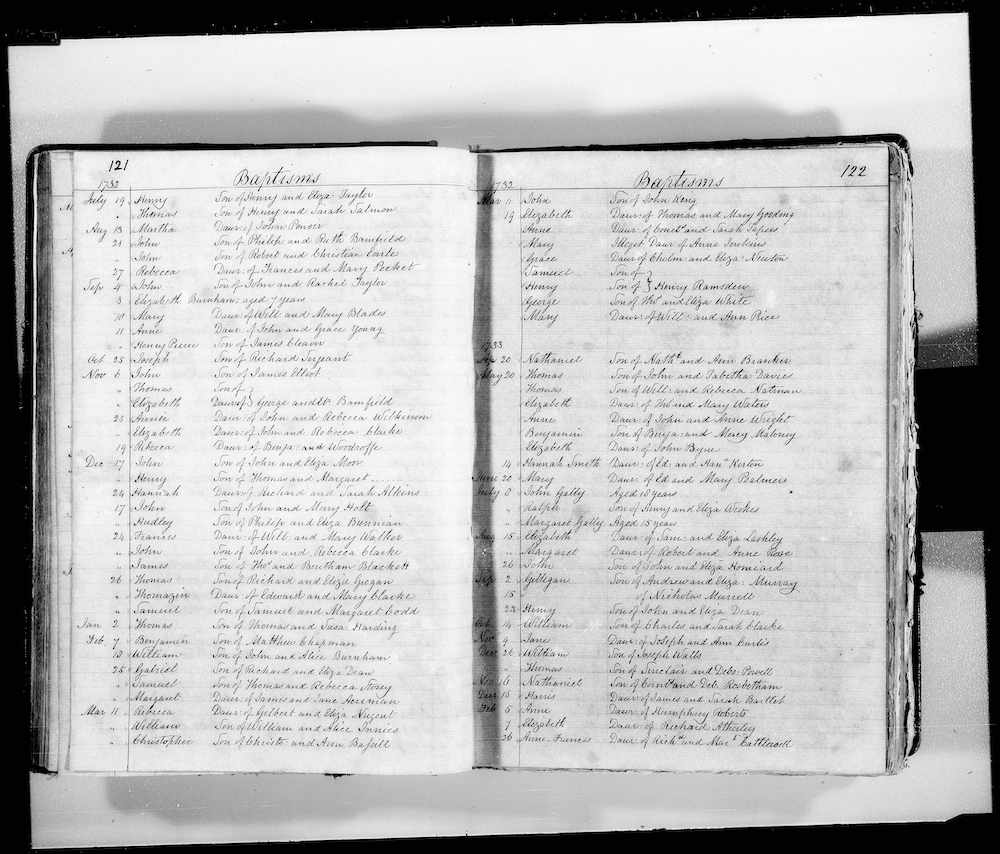 121
Baptisms
1732
July 19 Henry Son of Henry and Eliza Taylor
" Thomas Son of Henry and Sarah Salmon
Aug 13 Martha Daur of John Ponser
21 John Son of Philip and Ruth Bamfield
" John Son of Robert and Christian Earle
27 Rebecca Daur: of Frances and Mary Pecket
Sep 4 John Son of John and Rachel Taylor
3 Elizabeth Burnham: aged 7 years
10 Mary Daur: of Will: and Mary Blades
11 Anne Daur: of John and Grace Young
" Henry Pierce Son of James Cleaver
Oct 25 Joseph Son of Richard Sergeant
Nov 6 John Son of James Elliot
" Thomas Son of }
" Elizabeth Daur of } George and Bamfield
23 Annie Daur: of John and Rebecca Wilkinson
" Elizabeth Daur: of John and Rebecca Clarke
19 Rebecca Daur: of Benja: and Woodroffe
Dec 17 John Son of John and Eliza Moor
" Henry Son of Thomas and Margaret
24 Hannah Daur of Richard and Sarah Atkins
17 John Son of John and Mary Holt
" Hudley Son of Philip and Eliza Bunnian
24 Frances Daur: of Will: and Mary Walker
" John Son of John and Rebecca Clarke
" James Son of Thos and Bentham Blackett
26 Thomas Son of Richard and Eliza Geegan
" Thomazin Daur: of Edward and Mary Clarke
" Samuel Son of Samuel and Margaret Codd
Jan 2 Thomas Son of Thomas and Harding
Feb 7 Benjamin Son of Matthew Chapman
13 William Son of John and Alice Burnham
25 Gabriel Son of Richard and Eliza Dean
" Samuel Son of Thomas and Rebecca Nosey
" Margaret Daur: of James and Jane Herriman
Mar 11 Rebecca Daur: of Gilbert and Eliza Nugent
" William Son of William and Alice Innies
" Christopher Son of Christo: and Ann Basill
122
Baptisms
1732
Mar 11 John Son of John Keng
19 Elizabeth Daur: of Thomas and Mary Gooding
Anne Daur: of and Sarah
Mary Illegit Daur of Anne Jenkins
Grace Daur: of Cholm: and Eliza: Newton
Samuel Son of }
Henry Son of } Henry Ramsden
George Son of Thos: and Eliza White
Mary Daur: of Will: and Ann Rice
1733
20 Nathaniel Son of Nathl and Ann Brancker
May 20 Thomas Son of John and Tabetha Davies
Thomas Son of Will: and Rebecca Natman
Elizabeth Daur: of Thos and Mary Waters
Anne Daur: of John and Anne Wright
Benjamin Son of Benja: and Mercy Maloney
Elizabeth Daur: of John Byne
14 Hannah Smith Daur: of Ed: and Han: Kerton
June 20 Mary Daur: of Ed and Mary Balmers
July 8 John Gally Aged 18 years
" Ralph Son of Henry and Eliza Weekes
" Margaret Gally Aged 15 years
Aug 15 Elizabeth Daur: of Sam: and Eliza Lashley
" Margaret Daur: of Robert and Anne Rowe
26 John Son of John and Eliza: Homeard
Sep 2 Gilligan Son of Andrew and Eliza: Murray
15 of Nicholas Murrell
23 Henry Son of John and Eliza Dean
Oct 14 William Son of Charles and Sarah Clarke
Nov 9 Jane Daur: of Joseph and Ann Curtis
Dec 26 William Son of Joseph Walts
" Thomas Son of Sinclair and Deb: Powell
16 Nathaniel Son of Cornl: and Deb: Rowbotham
15 Harris Daur: of James and Sarah Bartlet
Feb 5 Anne Daur: of Humphrey Roberts
7 Elizabeth Daur: of Richard Atherley
26 Anne Frances Daur: of Richd and Mar: